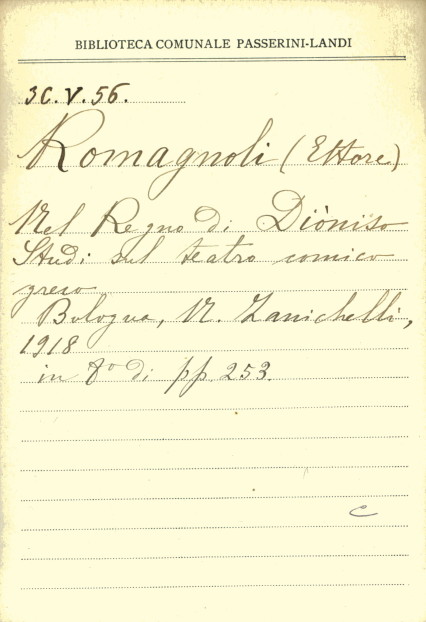 BIBLIOTECA COMUNALE PASSERINI-LANDI
3C.V.56.
Romagnoli (Ettore)
Nel Regno di Diòniso
Studi sul teatro comico
greco
Bologna, N. Zanichelli,
1918
in 8º di pp. 253.
c